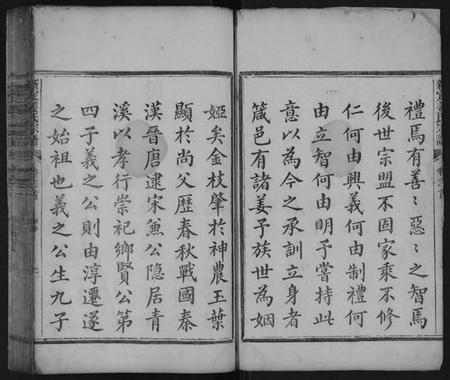 禮焉有善〻惡〻之智焉
後世宗盟不固家乘不修
仁何由興義何由制禮何
由立智何由明子嘗持此
意以為今之承訓立身者
箴邑有諸姜子族世為姻
婭矣金枝肇於神農玉葉
顯於尚父歷春秋戰國秦
漢晉唐逮宋兼公隐居青
溪以孝行崇祀鄉賢公第
四子義之公則由淳遷遂
之始祖也義之公生九子